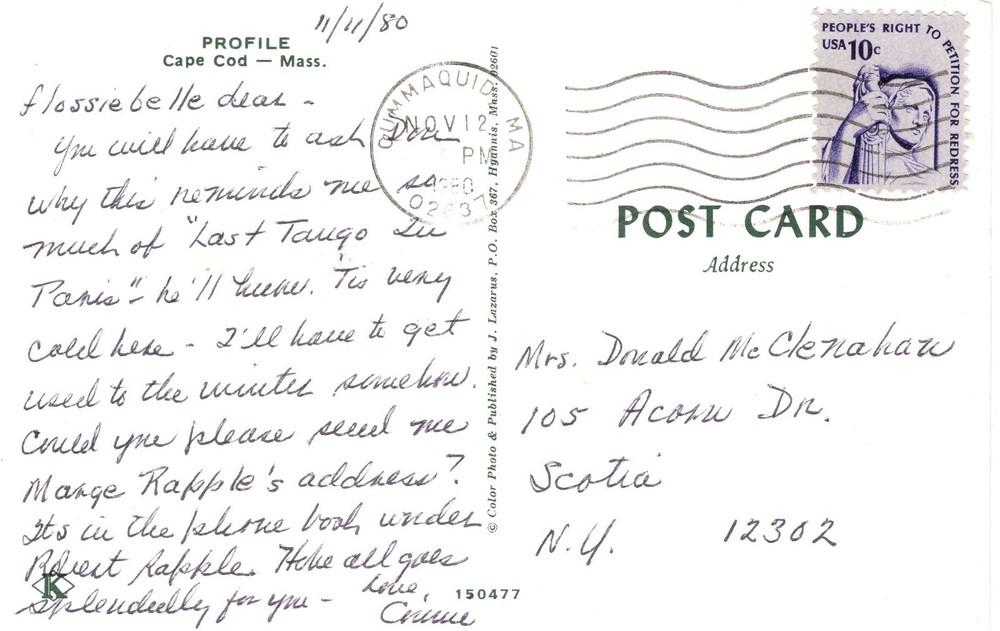 11/11/80
PROFILE
Cape Cod — Mass.
flossiebelle dear -
You will have to ask Don
why this reminds me so
much of "Last Tango In
Paris" - he'll know. Tis very
cold here - I'll have to get
used to the winter somehow.
Could you please send me
Marge Rapple's address?
Its in the phone book under
Robert Rapple. Hope all goes
splendidly for you -
Love,
Connie
K
150477
© Color Photo & Published by J. Lazarus, P.O. Box 367, Hyannis, Mass. 02601
CUMMAQUID MA
NOV 12
PM
1980
02637
PEOPLE'S RIGHT TO PETITION FOR REDRESS
USA 10c
POST CARD
Address
Mrs. Donald McClenahan
105 Acorn Dr.
Scotia
N.Y. 12302